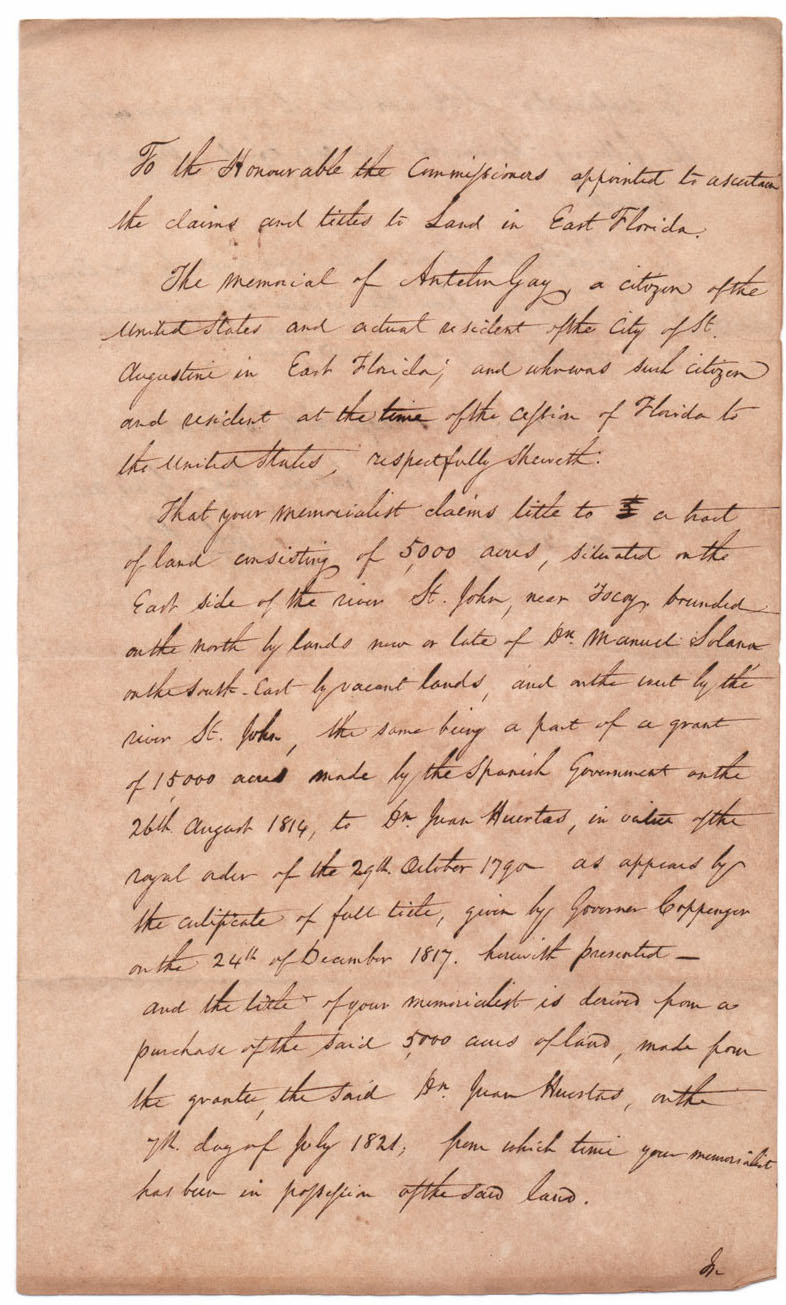 To the Honourable the Commissioners appointed to ascertain
the claims and titles to Land in East Florida.
The memorial of Antelm Gay, a citizen of the
United States and actual resident of the City of St.
Augustine in East Florida; and who was such citizen
and resident at the time of the cession of Florida to
the United States, respectfully sheweth:
That your memorialist claims title to a tract
of land consisting of 5,000 acres, situated on the
East side of the river St. John, near Tocoy, bounded
on the North by lands now or late of Dn. Manuel Solana
on the South-East by vacant lands, and on the west by the
river St. John, the same being a part of a grant
of 15,000 acres made by the Spanish Government on the
26th August 1814, to Dn. Juan Huertas, in value of the
royal order of the 29th. October 1790 as appears by
the certificate of full title, given by Governor Coppenger
on the 24th of December 1817. herewith presented —
and the title of your memorialist is derived from a
purchase of the said 5,000 acres of land, made from
the grantee, the said Dn. Juan Huertas, on the
7th. day of July 1821; from which time your memorialist
has been in possession of the said land.